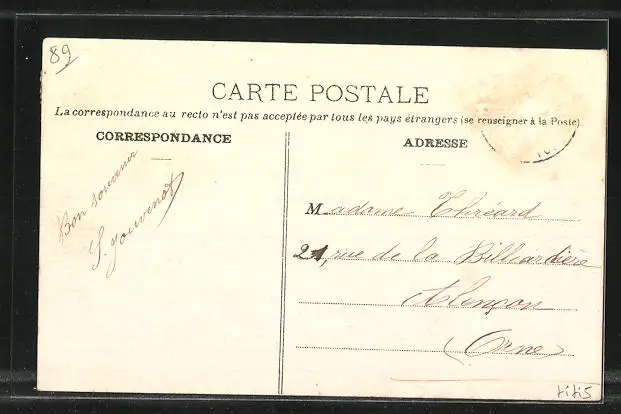 89
CARTE POSTALE
La correspondance au recto n'est pas acceptée par tous les pays étrangers (se renseigner à la Poste).
CORRESPONDANCE
ADRESSE
Bon souvenir
S. Jouvenot
Madame Thréard
21, rue de la Billardière
Alençon
(Orne)
titi5